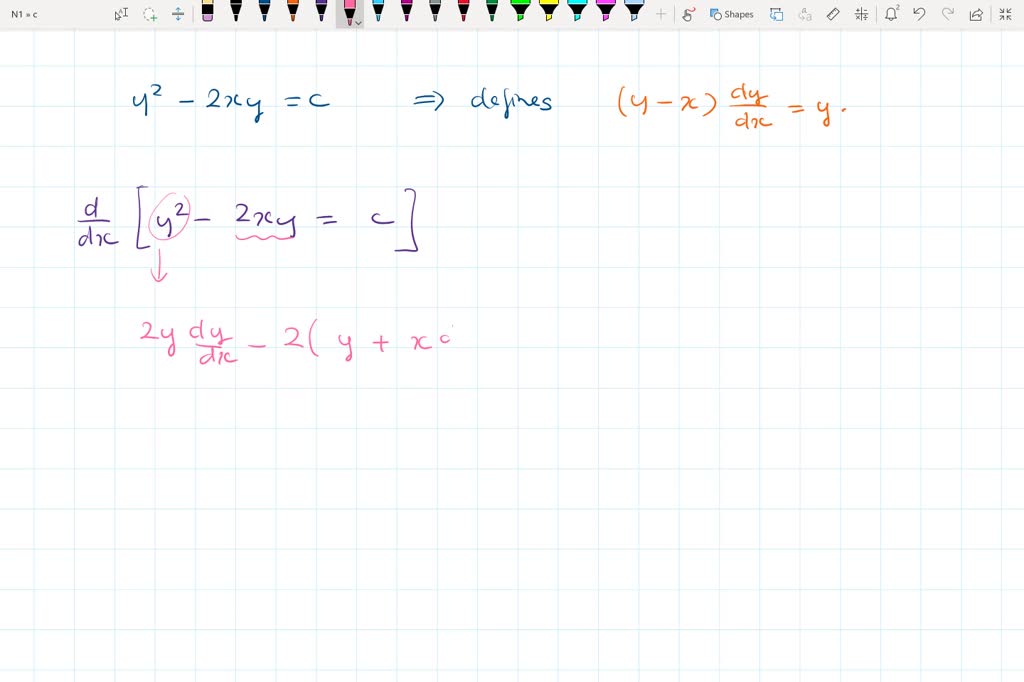 N1 » c
Shapes
2
y² - 2xy = c ⇒ defines (y - x) dy/dx = y.
d/dx [y² - 2xy = c]
2y dy/dx - 2( y + x